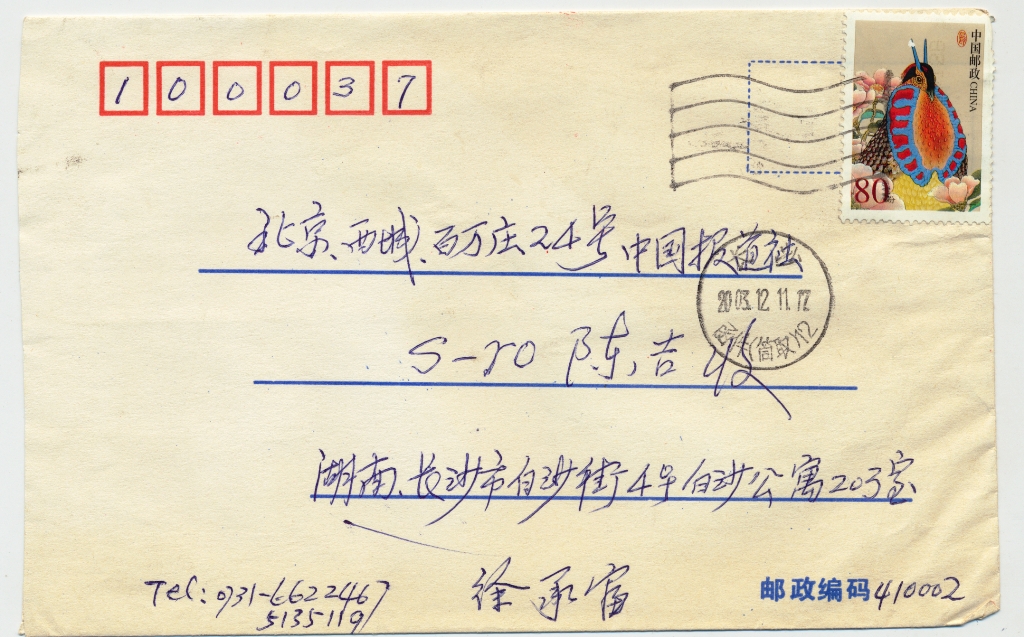 100037
中国邮政 CHINA
80分
北京、西城、百万庄24号中国报道社
2003.12.11.17
(筒取)12
S-ro 陈吉收
湖南、长沙市白沙街4号白沙公寓203室
Tel: 0731-6622467
5135119
徐承富
邮政编码 410002